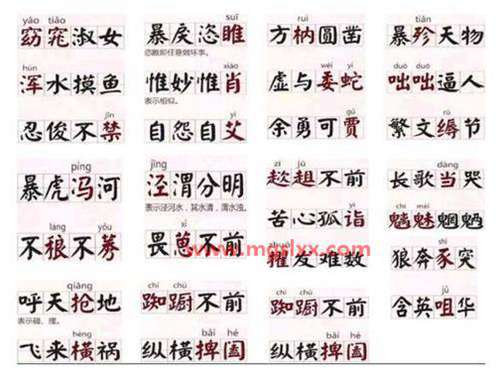 yáo tiǎo
窈窕淑女
suī
暴戾恣睢
恣睢即任意做坏事。
ruì
方枘圆凿
tiǎn
暴殄天物
hún
浑水摸鱼
xiào
惟妙惟肖
表示相似。
wēi yí
虚与委蛇
duō duō
咄咄逼人
jīn
忍俊不禁
yì
自怨自艾
余勇可贾
rù
繁文缛节
píng
暴虎冯河
jīng
泾渭分明
表示泾河水，其水清，渭水浊。
zī jū
趑趄不前
dàng
长歌当哭
láng yǒu
不稂不莠
xǐ
畏葸不前
yì
苦心孤诣
魑魅魍魉
擢发难数
狼奔豕突
qiāng
呼天抢地
表示碰、撞。
chí chú
踟蹰不前
chí chú
踟蹰不前
jǔ
含英咀华
hèng
飞来横祸
bǎi hé
纵横捭阖
bǎi hé
纵横捭阖